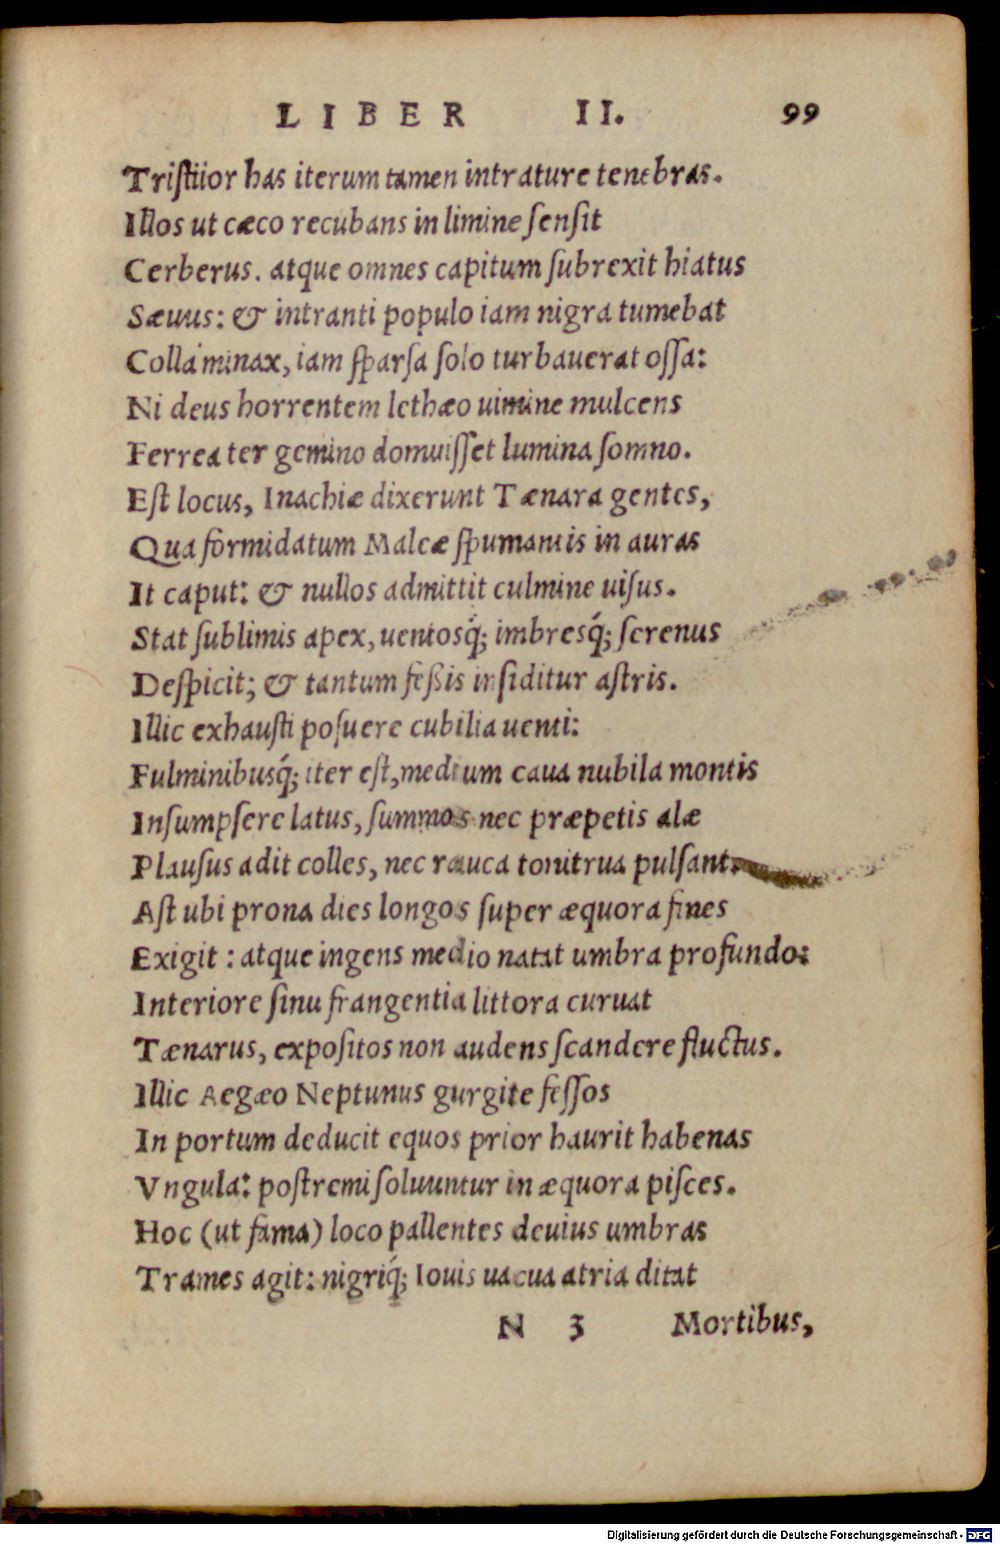 LIBER II. 99
Tristiior has iterum tamen intrature tenebras.
Illos ut cæco recubans in limine sensit
Cerberus. atque omnes capitum subrexit hiatus
Sæuus: & intranti populo iam nigra tumebat
Colla minax, iam sparsa solo turbauerat ossa:
Ni deus horrentem lethæo uimine mulcens
Ferrea ter gemino domuisset lumina somno.
Est locus, Inachiæ dixerunt Tænara gentes,
Qua formidatum Maleæ spumantis in auras
It caput: & nullos admittit culmine uisus.
Stat sublimis apex, uentosq́; imbresq́; serenus
Despicit; & tantum feßis insiditur astris.
Illic exhausti posuere cubilia uenti:
Fulminibusq́; iter est, medium caua nubila montis
Insumpsere latus, summos nec præpetis alæ
Plausus adit colles, nec rauca tonitrua pulsant.
Ast ubi prona dies longos super æquora fines
Exigit : atque ingens medio natat umbra profundo:
Interiore sinu frangentia littora curuat
Tænarus, expositos non audens scandere fluctus.
Illic Aegæo Neptunus gurgite fessos
In portum deducit equos prior haurit habenas
Vngula: postremi soluuntur in æquora pisces.
Hoc (ut fama) loco pallentes deuius umbras
Trames agit: nigriq́; Iouis uacua atria ditat
N 3 Mortibus,
Digitalisierung gefördert durch die Deutsche Forschungsgemeinschaft - DFG